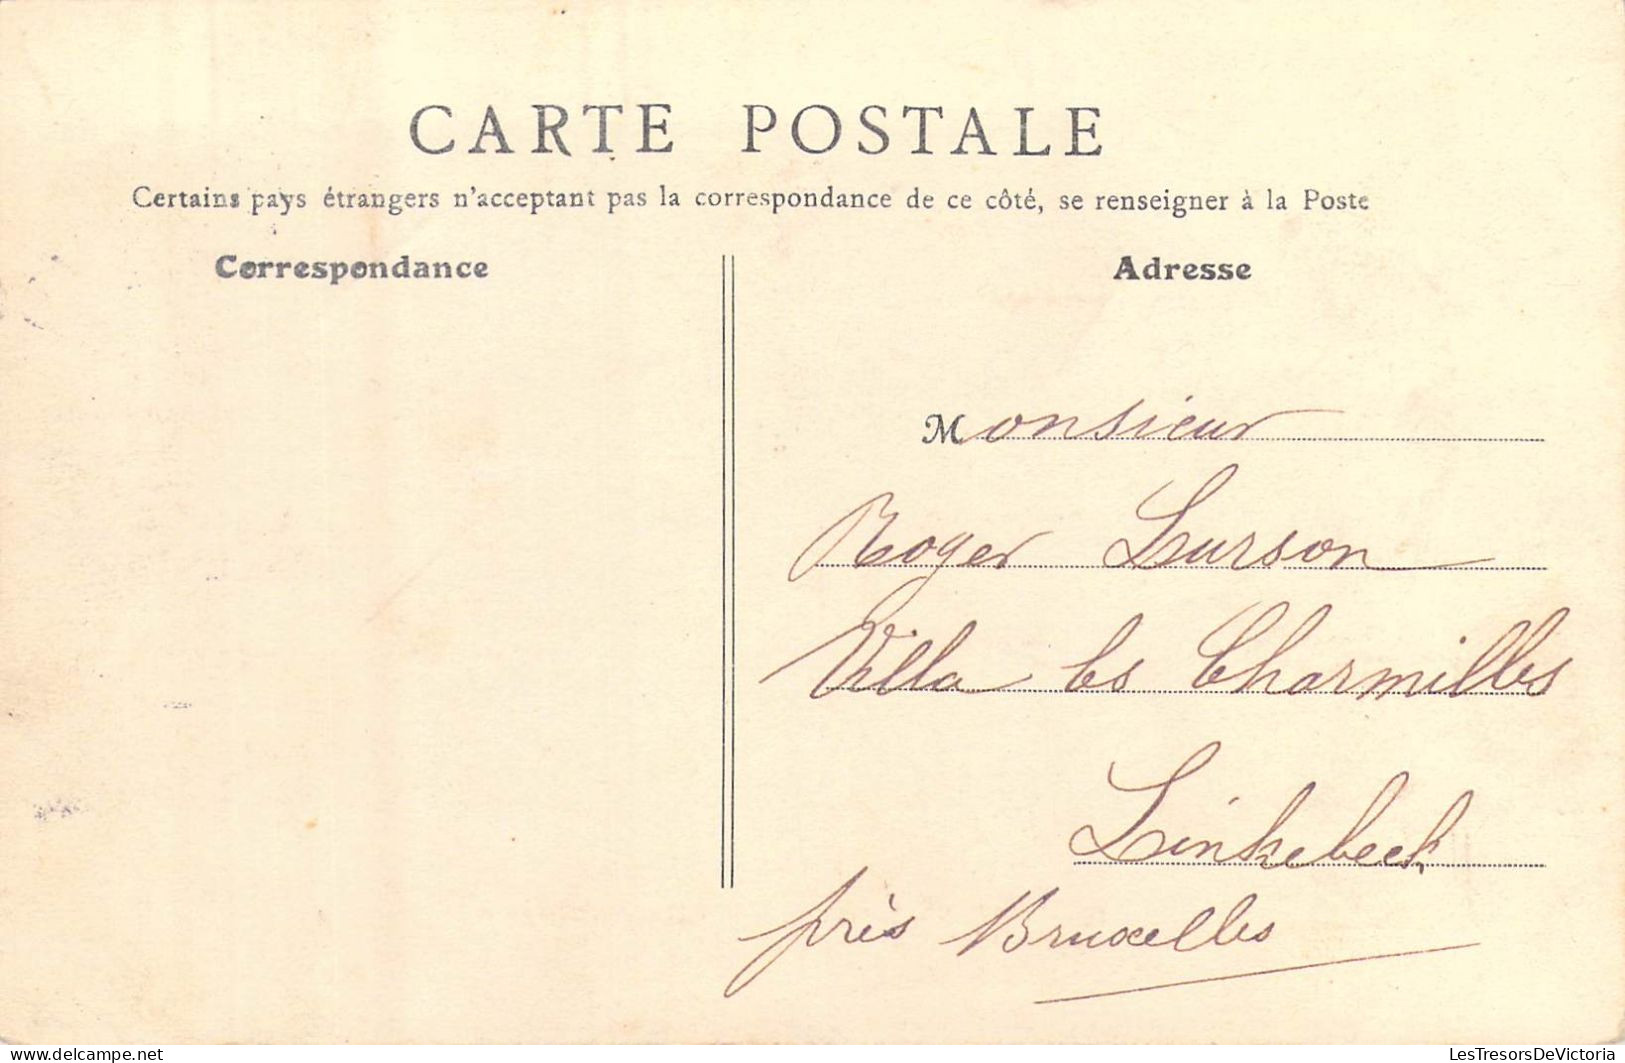 CARTE POSTALE
Certains pays étrangers n'acceptant pas la correspondance de ce côté, se renseigner à la Poste
Correspondance
Adresse
Monsieur
Roger Lurson
Villa les Charmilles
Linkebeek
près Bruxelles
delcampe.net
LesTresorsDeVictoria